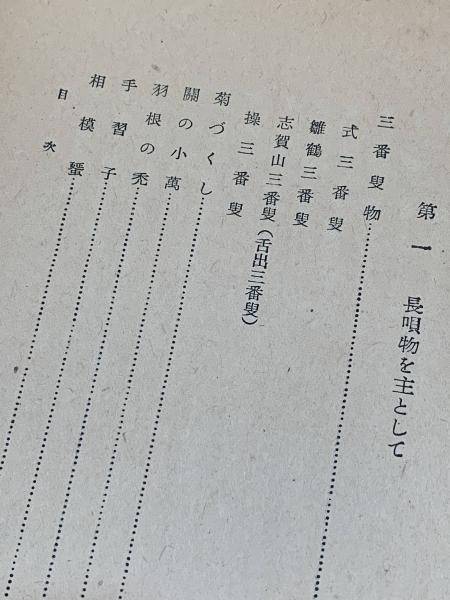 第一 長唄物を主として
三番叟物
式三番叟
雛鶴三番叟
志賀山三番叟(舌出三番叟)
操三番叟
菊づくし
關の小萬
羽根の禿
手習子
相模蜑
目次